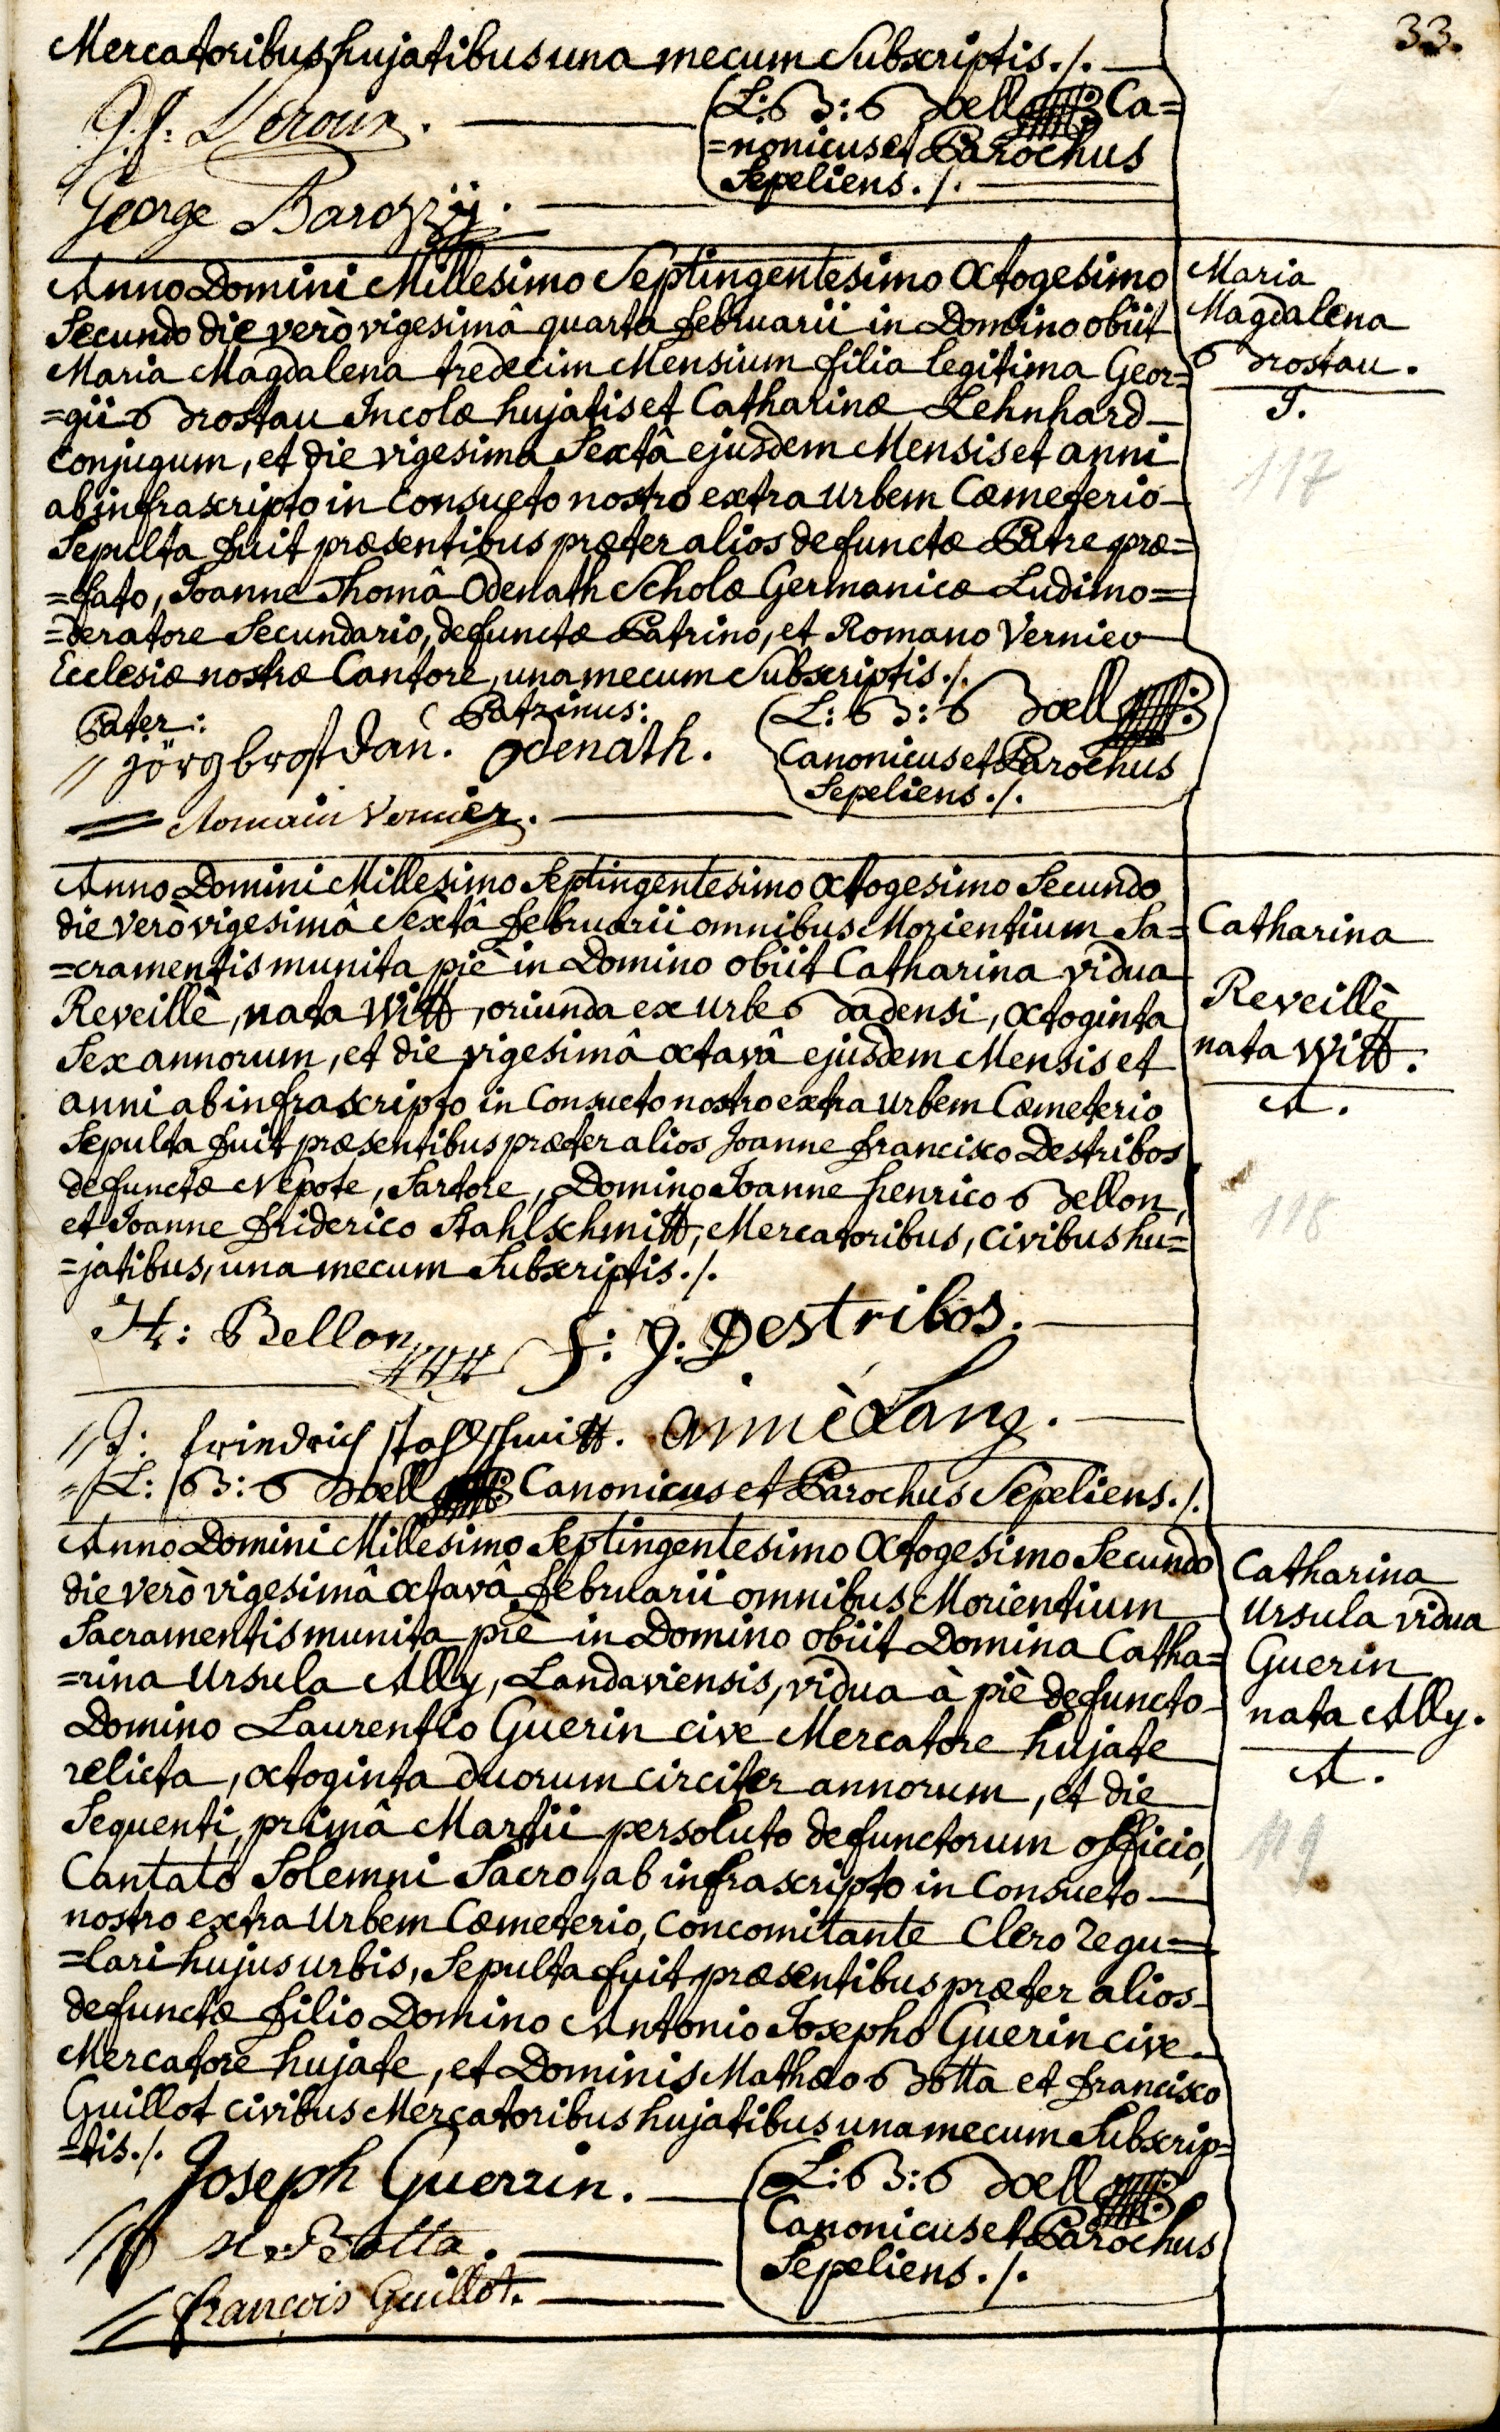 33.
Mercatoribus hujatibus una mecum Subscriptis./.
J. J. Leroux.
L: B: Böell Ca=
=nonicus et Parochus
Sepeliens./.
George Barozzÿ.
Anno Domini Millesimo Septingentesimo Octogesimo
Secundo die verò vigesimâ quarta Februarii in Domino obiit
Maria Magdalena tredecim Mensium filia legitima Geor=
=gii Brostau Incolæ hujatis et Catharinæ Lehnhard
Conjugum, et die vigesima Sextâ ejusdem Mensis et anni
ab infrascripto in Consueto nostro extra Urbem Cœmeterio
Sepulta fuit præsentibus præter alios defunctæ Patre præ=
=fato, Joanne Thomâ Odenath Scholæ Germanicæ Ludimo=
=deratore Secundario, defunctæ Patrino, et Romano Vernier
Ecclesiæ nostræ Cantore, una mecum Subscriptis./.
Pater:
Patrinus:
görg brostau.
Odenath.
L: B: Böell
Canonicus et Parochus
Sepeliens./.
Romain Vernier.
Maria
Magdalena
Brostau.
J.
117
Anno Domini Millesimo Septingentesimo Octogesimo Secundo
die verò vigesimâ Sextâ Februarii omnibus Morientium Sa=
=cramentis munita piè in Domino obiit Catharina vidua
Reveillè, nata Witt, oriunda ex Urbe Badensi, Octoginta
Sex annorum, et die vigesimâ octavâ ejusdem Mensis et
anni ab infrascripto in Consueto nostro extra Urbem Cœmeterio
Sepulta fuit præsentibus præter alios Joanne Francisco Destribos
defunctæ Nepote, Sartore, Domino Joanne Henrico Bellon,
et Joanne Friderico Stahlschmitt, Mercatoribus, Civibus hu=
=jatibus, una mecum Subscriptis./.
H: Bellon
f: J: Destribos.
J: friedrich stahlschmitt.
aimè Lang.
L: B: Böell Canonicus et Parochus Sepeliens./.
Catharina
Reveillè
nata Witt.
A.
118
Anno Domini Millesimo Septingentesimo Octogesimo Secundo
die verò vigesimâ octavâ Februarii omnibus Morientium
Sacramentis munita piè in Domino obiit Domina Catha=
=rina Ursula Ally, Landaviensis, vidua à piè defuncto
Domino Laurentio Guerin cive Mercatore hujate
relicta, octoginta duorum circiter annorum, et die
Sequenti, primâ Martii persoluto defunctorum officio,
Cantato Solemni Sacro, ab infrascripto in Consueto
nostro extra Urbem Cœmeterio, Concomitante Clero regu=
=lari hujus urbis, Sepulta fuit præsentibus præter alios
defunctæ filio Domino Antonio Josepho Guerin cive
Mercatore hujate, et Dominis Mathæo Botta et Francisco
Guillot civibus Mercatoribus hujatibus una mecum Subscrip=
=tis./.
Joseph Guerrin.
L: B: Böell
Canonicus et Parochus
Sepeliens./.
M. Botta.
François Guillot.
Catharina
Ursula vidua
Guerin
nata Ally.
A.
119